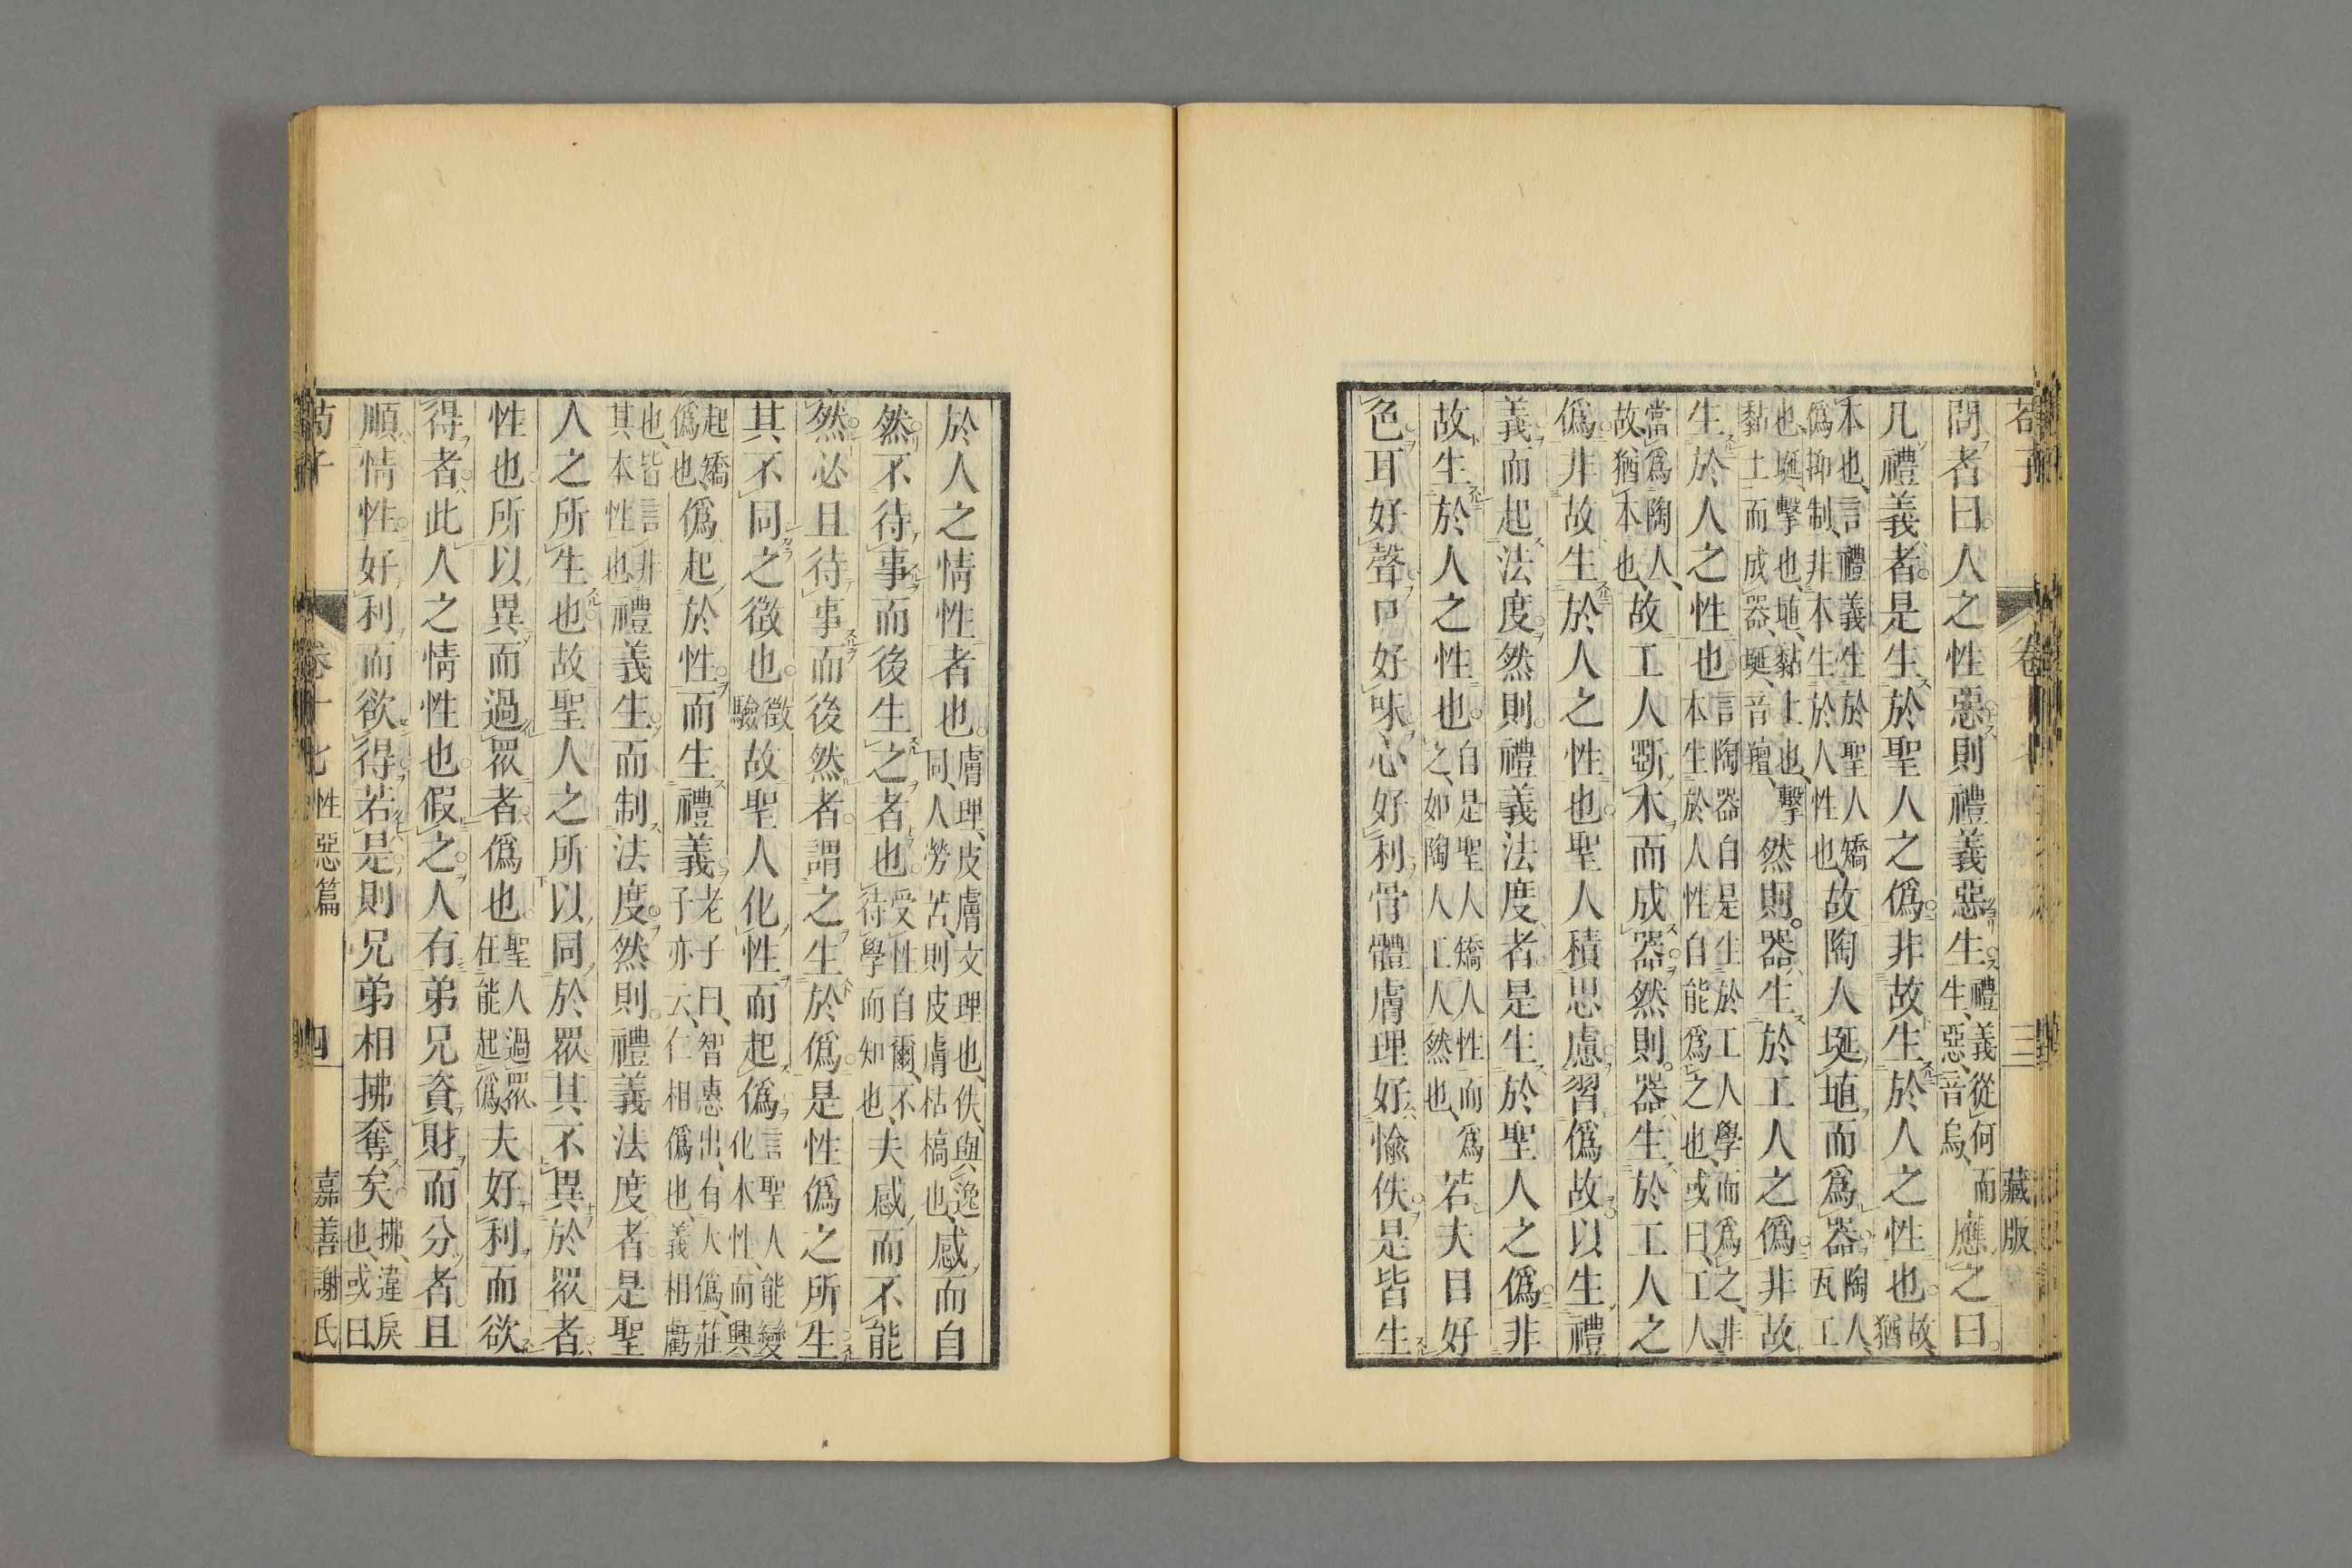 荀子 卷 三 藏版
問者曰人之性惡則禮義惡生禮義從何而生惡音烏應之曰
凡禮義者是生於聖人之僞非故生於人之性也故猶
本也言禮義生於聖人矯僞抑制非本生於人性也故陶人埏埴而爲器陶人瓦工
也埏擊也埴黏土也擊黏土而成器埏音羶然則器生於工人之僞非故
生於人之性也言陶器自是生於工人學而爲之非本生於人性自能爲之也或曰工人
當爲陶人故猶本也故工人斲木而成器然則器生於工人之
僞非故生於人之性也聖人積思慮習僞故以生禮
義而起法度然則禮義法度者是生於聖人之僞非
故生於人之性也自是聖人矯人性而爲之如陶人工人然也若夫目好
色耳好聲口好味心好利骨體膚理好愉佚是皆生
於人之情性者也膚理皮膚文理也佚與逸同人勞苦則皮膚枯槁也感而自
然不待事而後生之者也受性自爾不待學而知也夫感而不能
然必且待事而後然者謂之生於僞是性僞之所生
其不同之徵也徵驗故聖人化性而起僞言聖人能變化本性而興
起矯僞也僞起於性而生禮義老子曰智惠出有大僞莊子亦云仁相僞也義相虧
也皆言非其本性也禮義生而制法度然則禮義法度者是聖
人之所生也故聖人之所以同於眾其不異於眾者
性也所以異而過眾者僞也聖人過眾在能起僞夫好利而欲
得者此人之情性也假之人有弟兄資財而分者且
順情性好利而欲得若是則兄弟相拂奪矣拂違戾也或曰
荀子 卷十七 性惡篇 四 嘉善謝氏